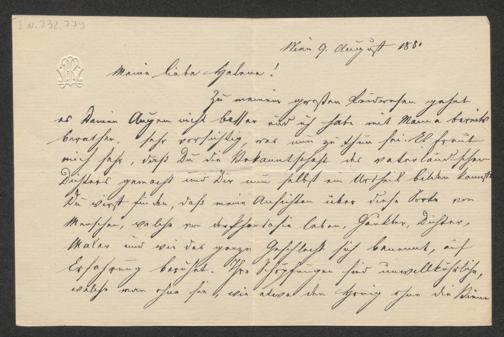 I.N. 232.779
Wien 9. August 188
Meine liebe Helene!
Zu meinem großen Bedauern geht
es Deinen Augen nicht besser und ich habe mit Mama bereits
berathen, sehr vorsichtig was nun zu thun sei. Es freut
mich sehr, daß Du die Bekanntschaft des vaterländischen
Dichters gemacht und Dir nun selbst ein Urtheil bilden kannst.
Du wirst finden, daß meine Ansichten über diese Sorte von
Menschen, welche von der Phantasie leben, Gaukler, Dichter,
Maler und wie das ganze Geschlecht sich benennt, auf
Erfahrung beruhet. Ihre Schöpfungen sind unwillkührliche,
welche man ohne sie, wie etwa den Honig ohne die Biene